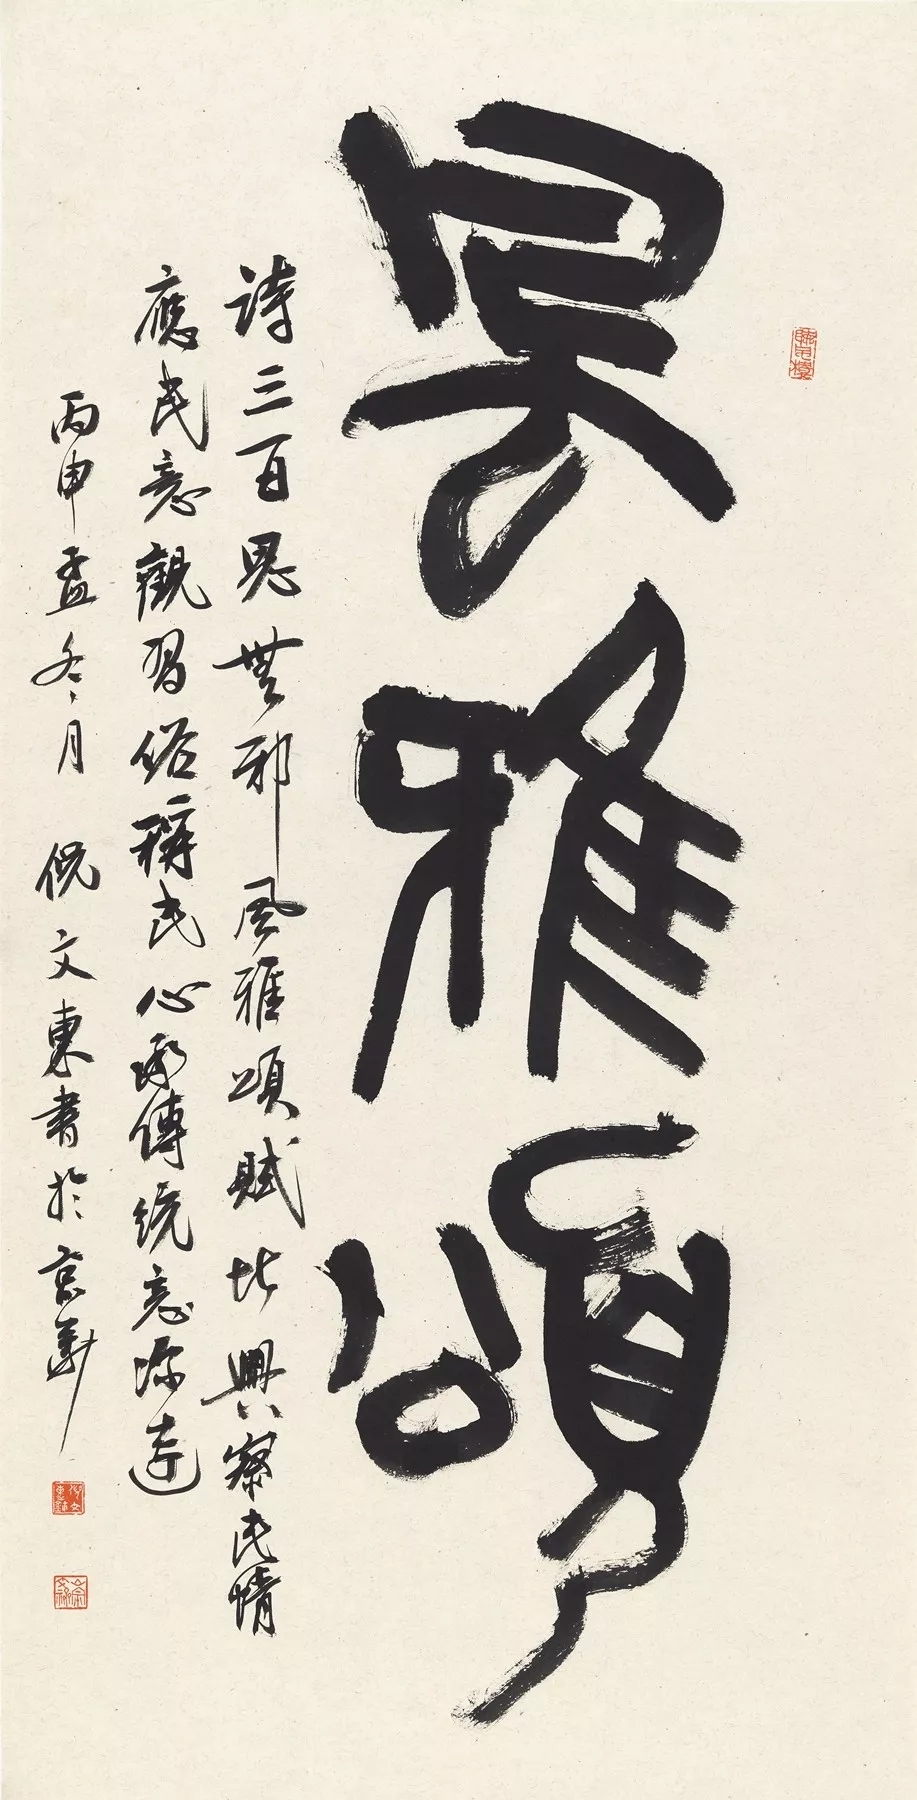 風雅頌
詩三百思無邪風雅頌賦比興察民情
應民意觀習俗稱民心承傳統意深遠
丙申孟冬月 倪文東書於京華